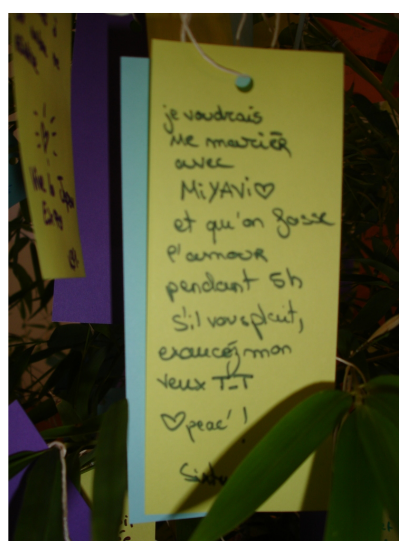 je voudrais
me marier
avec
MiYAVi♡
et qu'on fasse
l'amour
pendant 5h
s'il vous plait,
exaucéz mon
veux T-T
♡peac'!